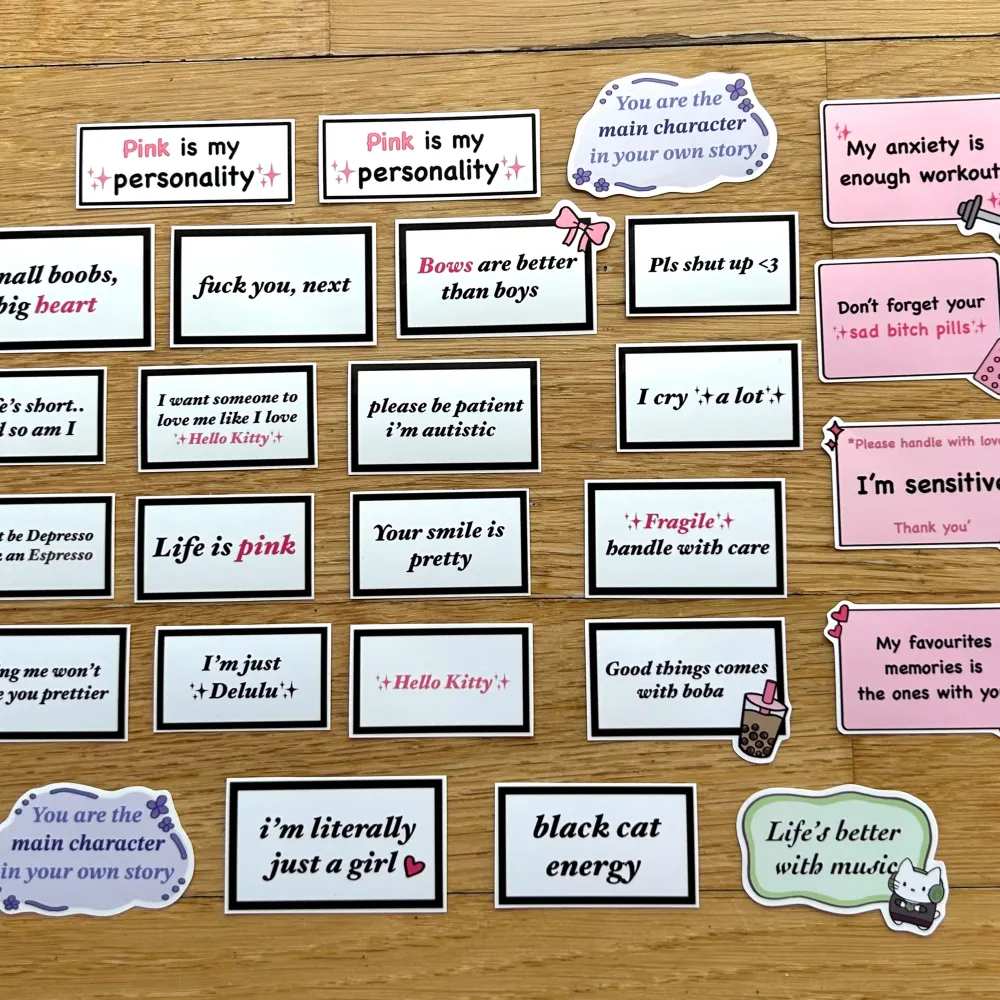 Pink is my
personality
Pink is my
personality
You are the
main character
in your own story
My anxiety is
enough workout
boobs,
big heart
fuck you, next
Bows are better
than boys
Pls shut up <3
Don't forget your
sad bitch pills
short..
so am I
I want someone to
love me like I love
Hello Kitty
please be patient
i'm autistic
I cry a lot
*Please handle with love
I'm sensitive
Thank you'
be Depresso
an Espresso
Life is pink
Your smile is
pretty
Fragile
handle with care
me won't
you prettier
I'm just
Delulu
Hello Kitty
Good things comes
with boba
My favourites
memories is
the ones with you
You are the
main character
in your own story
i'm literally
just a girl
black cat
energy
Life's better
with music